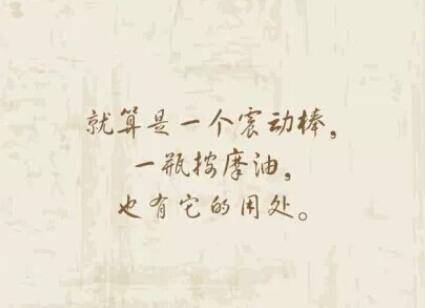 就算是一个震动棒，
一瓶按摩油，
也有它的用处。